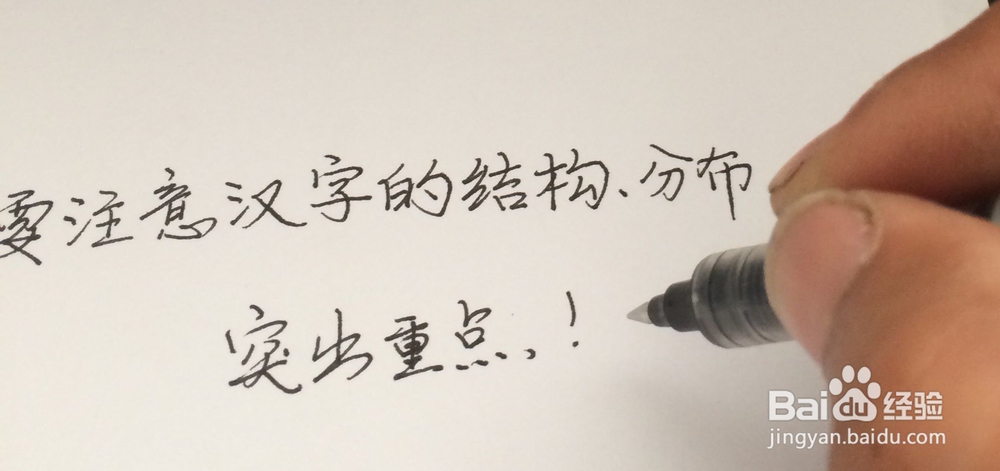 要注意汉字的结构、分布
突出重点！
Bai du 经验
jingyan.baidu.com